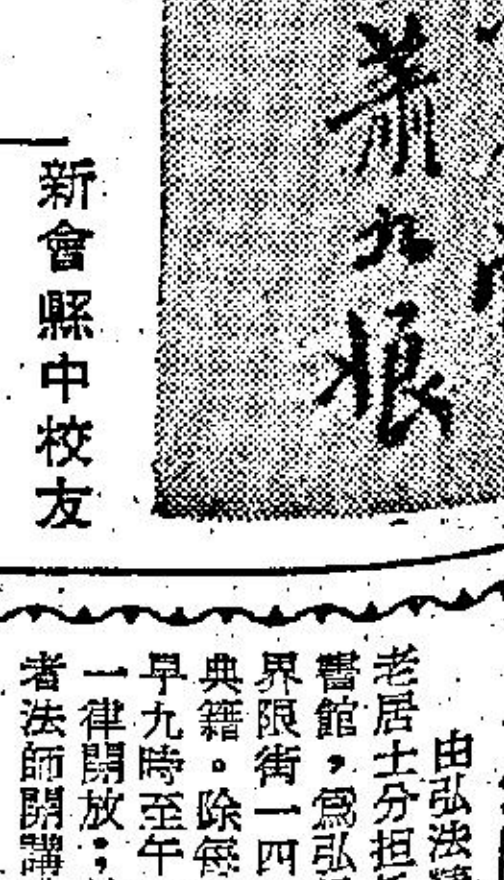 蕭
新會縣中校友
由弘法
老居士分担
書館，爲弘
界限街一四
典籍。除每
早九時至午
一律開放；
者法師開講